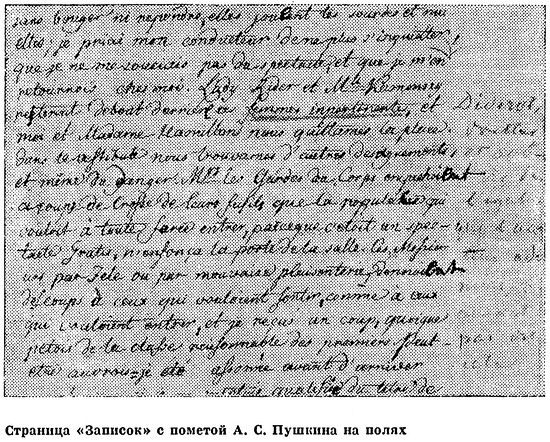 sans bouger ni repondre, elles jouoient les sourdes et mu
elles; je priai mon conducteur de ne plus s'inquieter,
que je ne me souciois pas du spectacle, et que je m'en
retournois chés moi. Lady Rider et Mlle
resterent debout derriere ces femmes impertinente, et
moi et Madame Hamilton nous quittames la place.
dans le vestibule nous trouvames d'autres desagrements,
et même du danger. Mrs les Gardes du Corps empechoient
à coups de Crosse de leurs fusils que la populace qui
vouloit à toute force entrer, parceque c'etoit un spec-
tacle gratis, n'enfonça la porte de la salle. Ces Messie-
urs par zele ou par mauvaise plaisanterie donnoient
des coups à ceux qui vouloient sortir, comme à ceux
qui vouloient entrer, et je reçus un coup, quoique
j'etois de la classe raisonnable des premiers, peut-
etre aurois-je eté assomé avant d'arriver
qualité du
Страница «Записок» с пометой А. С. Пушкина на полях